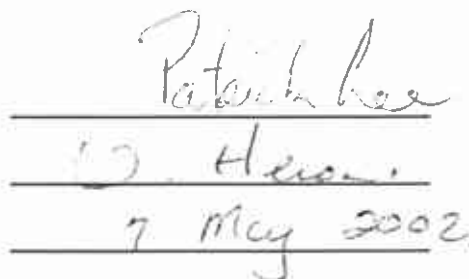 Patrick Lee
D. Heron.
7 May 2002